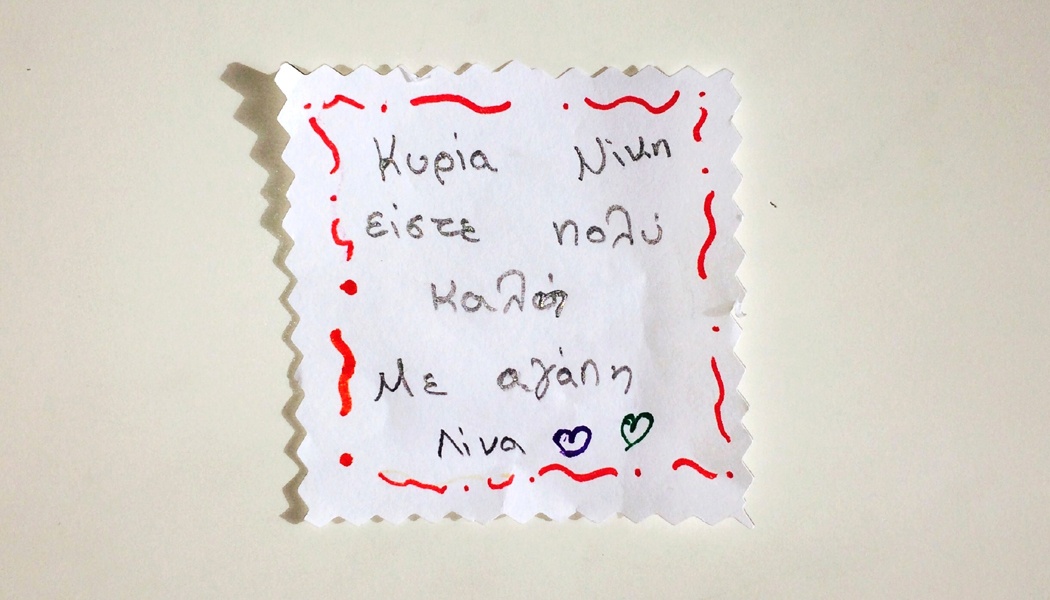 Κυρία Νίκη
είστε πολύ
καλή
Με αγάπη
Λίνα